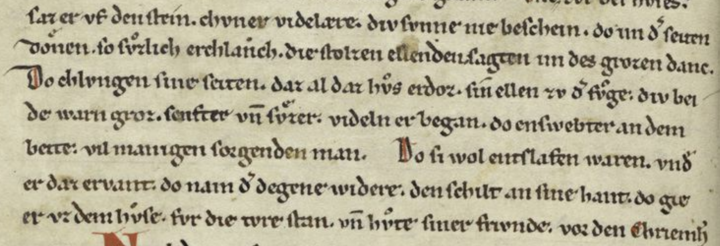 saz er vf den stein. chvner videlære. div svnne nie beschein. do im d͛ seiten
donen. so sv̊zlich erchlanch. die stolzen ellenden. sagten im des grozen danc.
Do chlvngen sine seiten. daz al daz hv̊s erdoz. sin ellen zv d͛ fv̊ge. div bei
de warn groz. senfter vn̄ sv̊zer. videln er began. do enswebter an dem
bette. vil manigen sorgenden man. Do si wol entslafen waren. vnd͛
er daz ervant. do nam d͛ degene widere. den schilt an sine hant. do gie
er vz dem hv̊se. fvr die tvre stan. vn̄ hv̊te siner frivnde. vor den Chriemh